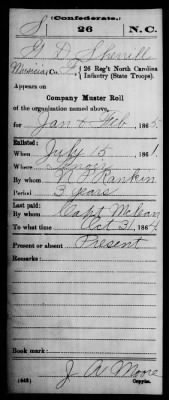 S (Confederate.)
26 N.C.
G D Sherrill
Co. F, 26 Reg't North Carolina
Infantry (State Troops).
Appears on
Company Muster Roll
of the organization named above,
for Jan & Feb, 1865.
Enlisted:
When July 15, 1861.
Where Lenoir
By whom N P Rankin
Period 3 years
Last paid:
By whom Capt McLean
To what time Oct 31, 1864
Present or absent Present
Remarks:
Book mark:
(642) J. A. Moore
Copyist.